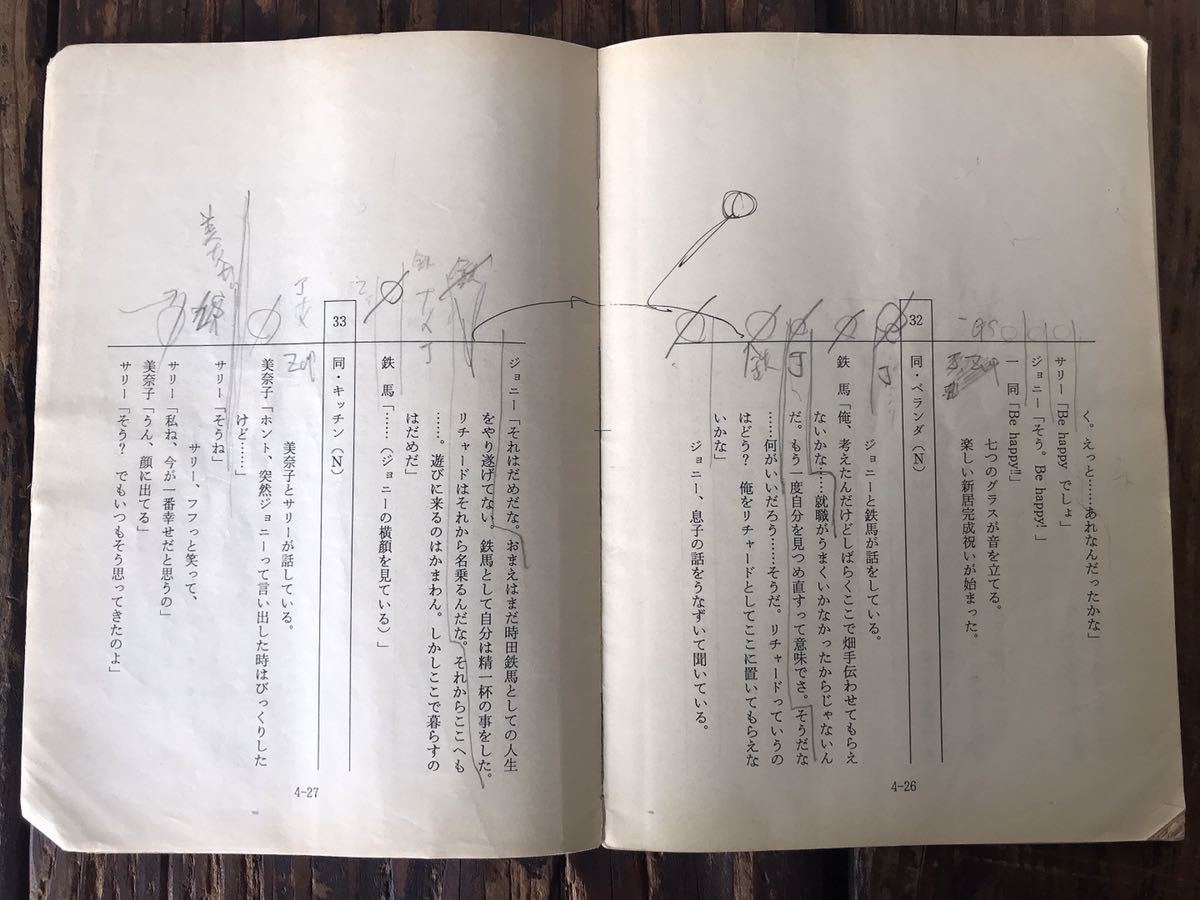 く。えっと……あれなんだったかな」
サリー「Be happy でしょ」
ジョニー「そう。Be happy!」
一　同「Be happy!!」
七つのグラスが音を立てる。
楽しい新居完成祝いが始まった。
32
同・ベランダ（N）
ジョニーと鉄馬が話をしている。
鉄　馬「俺、考えたんだけどしばらくここで畑手伝わせてもらえ
ないかな……就職がうまくいかなかったからじゃないん
だ。もう一度自分を見つめ直すって意味でさ。そうだな
……何がいいだろう……そうだ。リチャードっていうの
はどう？　俺をリチャードとしてここに置いてもらえな
いかな」
ジョニー、息子の話をうなずいて聞いている。
4-26
ジョニー「それはだめだな。おまえはまだ時田鉄馬としての人生
をやり遂げてない。鉄馬として自分は精一杯の事をした。
リチャードはそれから名乗るんだな。それからここへも
……。遊びに来るのはかまわん。しかしここで暮らすの
はだめだ」
鉄　馬「……（ジョニーの横顔を見ている）」
33
同・キッチン（N）
美奈子とサリーが話している。
美奈子「ホント、突然ジョニーって言い出した時はびっくりした
けど……」
サリー「そうね」
サリー、フフっと笑って、
サリー「私ね、今が一番幸せだと思うの」
美奈子「うん、顔に出てる」
サリー「そう？　でもいつもそう思ってきたのよ」
4-27